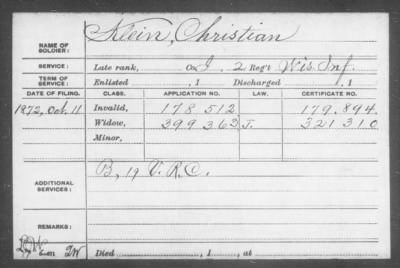 NAME OF SOLDIER: Klein, Christian
SERVICE: Late rank, Co. I, 2 Reg't Wis. Inf.
TERM OF SERVICE: Enlisted , 1 Discharged , 1
DATE OF FILING. CLASS. APPLICATION NO. LAW. CERTIFICATE NO.
1872, Oct. 11 Invalid, 178 512 179.894.
Widow, 399 363 J. 321 310
Minor,
ADDITIONAL SERVICES: B, 19 V.R.C.
REMARKS:
Died , 1 , at